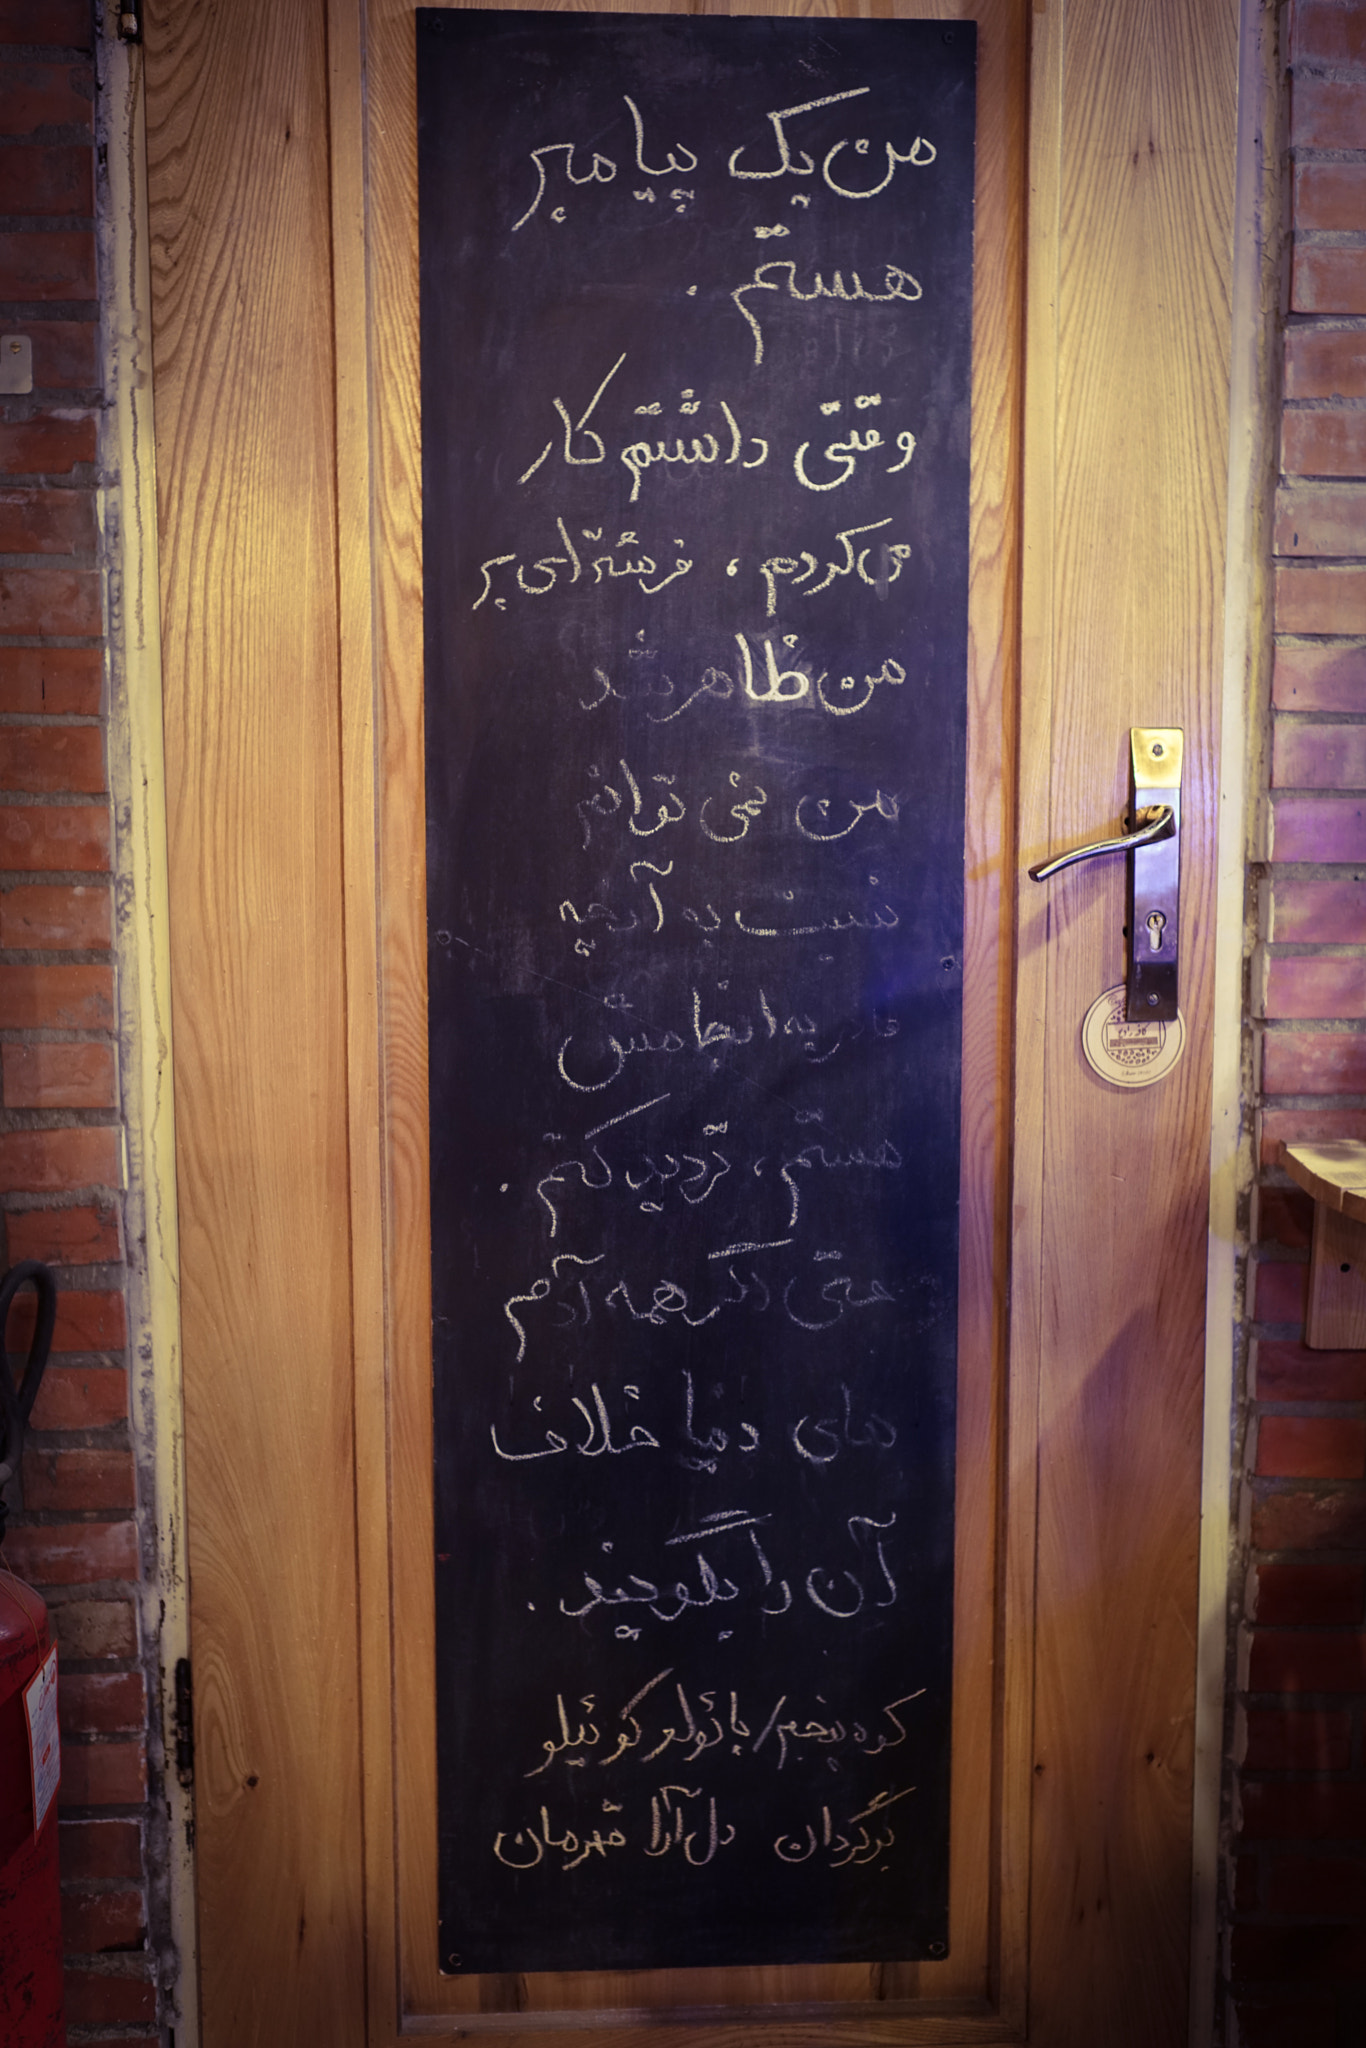 من یک پیامبر
هستم .
وقتی داشتم کار
می کردم ، فرشته ای بر
من ظاهر شد
من نمی توانم
نسبت به آنچه
قادر به انجامش
هستم ، تردید کنم .
حتی اگر همه آدم
های دنیا خلاف
آن را بگویند .
کوه پنجم / پائولو کوئیلو
برگردان دل آرا قهرمان